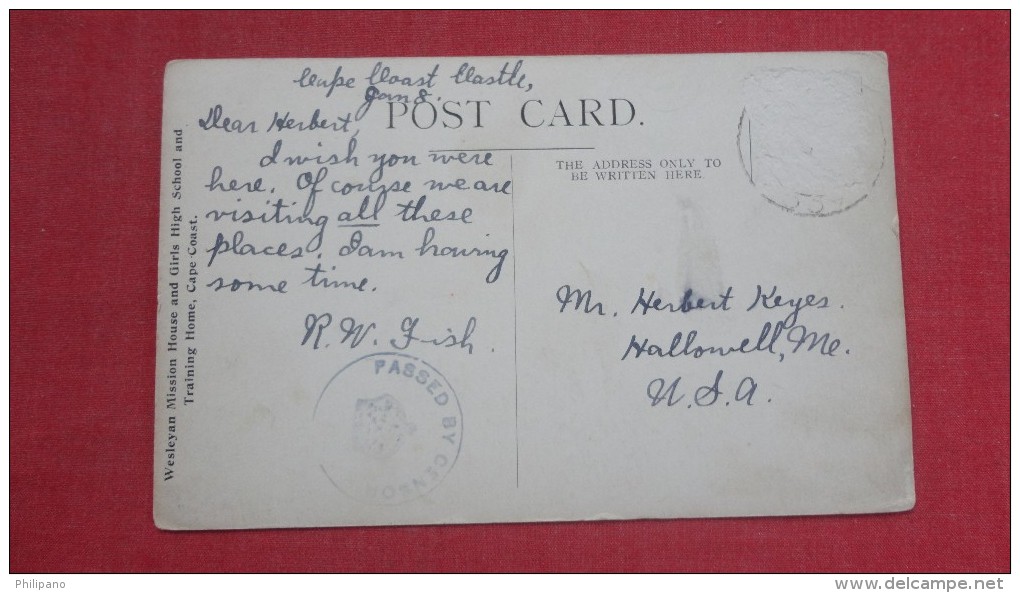 Cape Coast Castle,
Jan 8.
POST CARD.
Dear Herbert,
I wish you were
here. Of course we are
visiting all these
places. I am having
some time.
R. W. Fish.
PASSED BY CENSOR
THE ADDRESS ONLY TO
BE WRITTEN HERE.
Mr. Herbert Keyes.
Hallowell, Me.
U. S. A.
Wesleyan Mission House and Girls High School and
Training Home, Cape Coast.
Philipano
www.delcampe.net